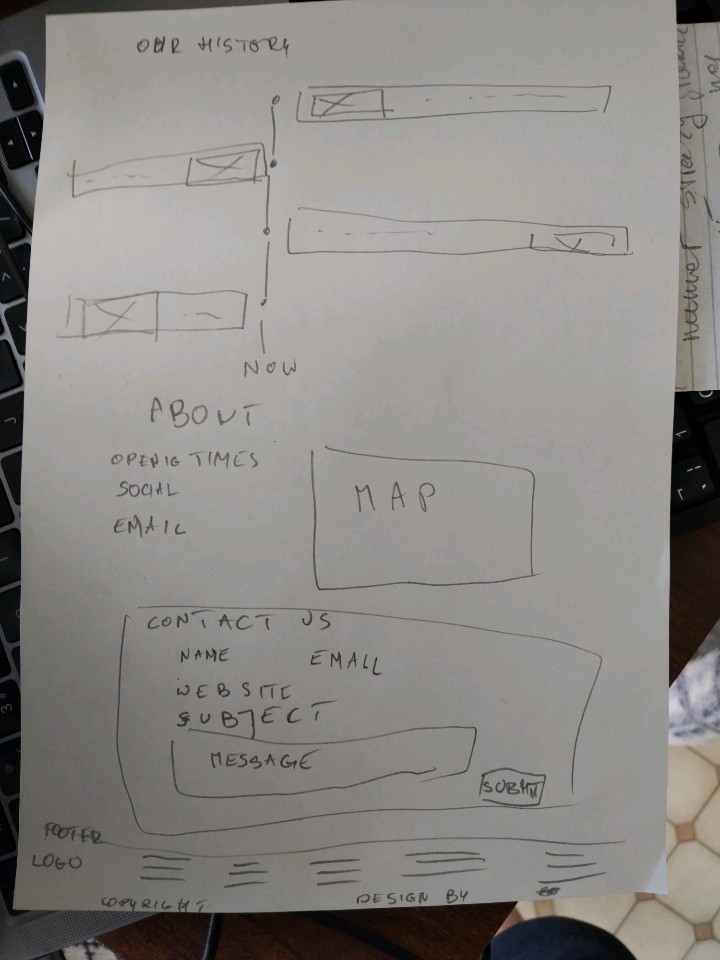 OUR HISTORY
NOW
ABOUT
OPENIG TIMES
SOCIAL
EMAIL
MAP
CONTACT US
NAME EMAIL
WEBSITE
SUBJECT
MESSAGE
SUBMIT
FOOTER
LOGO
COPYRIGHT DESIGN BY